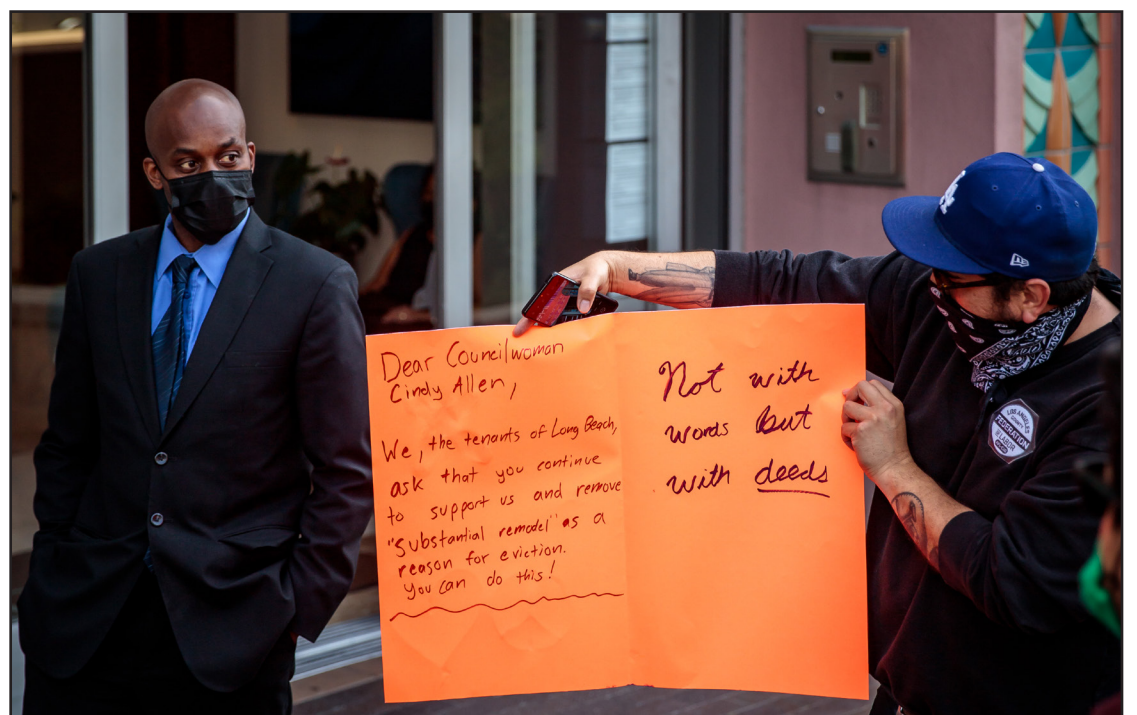 Dear Councilwoman
Cindy Allen,
We, the tenants of Long Beach,
ask that you continue
to support us and remove
"substantial remodel" as a
reason for eviction.
You can do this!
Not with
words But
with deeds
LA
LOS ANGELES
FEDERATION
LABOR